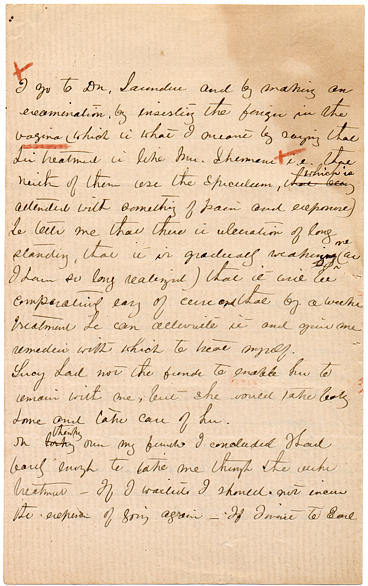 I go to Dr. Saunders and by making an
examination, by inserting the finger in the
vagina (which is what I meant by saying that
his treatment is like Mrs. Sherman's i.e. that
neith of them use the Speculum, which is
attended with something of pain and exposure)
he tells me that there is ulceration of long
standing, that it is gradually weakening me (as
I have so long realized) that it will be
comparatively easy of cure and that by a weeks
treatment he can alleviate it and give me
remedies with which to treat myself.
Lucy had not the funds to enable her to
remain with me, but she would take baby
home and take care of her.
On thinking over my funds I concluded I had
barely enough to take me through the weeks
treatment — If I waited I should not incur
the expense of going again — If I were to